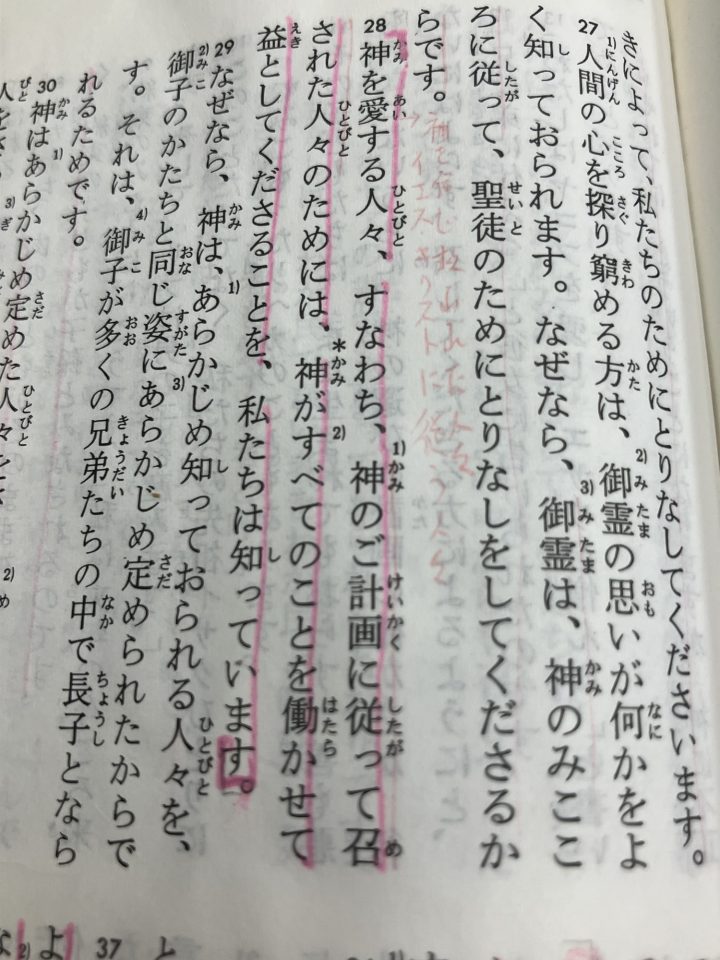 きによって、私たちのためにとりなしてくださいます。
27 人間の心を探り窮める方は、御霊の思いが何かをよ
く知っておられます。なぜなら、御霊は、神のみここ
ろに従って、聖徒のためにとりなしをしてくださるか
らです。
28 神を愛する人々、すなわち、神のご計画に従って召
された人々のためには、*神がすべてのことを働かせて
益としてくださることを、私たちは知っています。
29 なぜなら、神は、あらかじめ知っておられる人々を、
御子のかたちと同じ姿にあらかじめ定められたからで
す。それは、御子が多くの兄弟たちの中で長子となら
れるためです。
30 神はあらかじめ定めた人々を
37